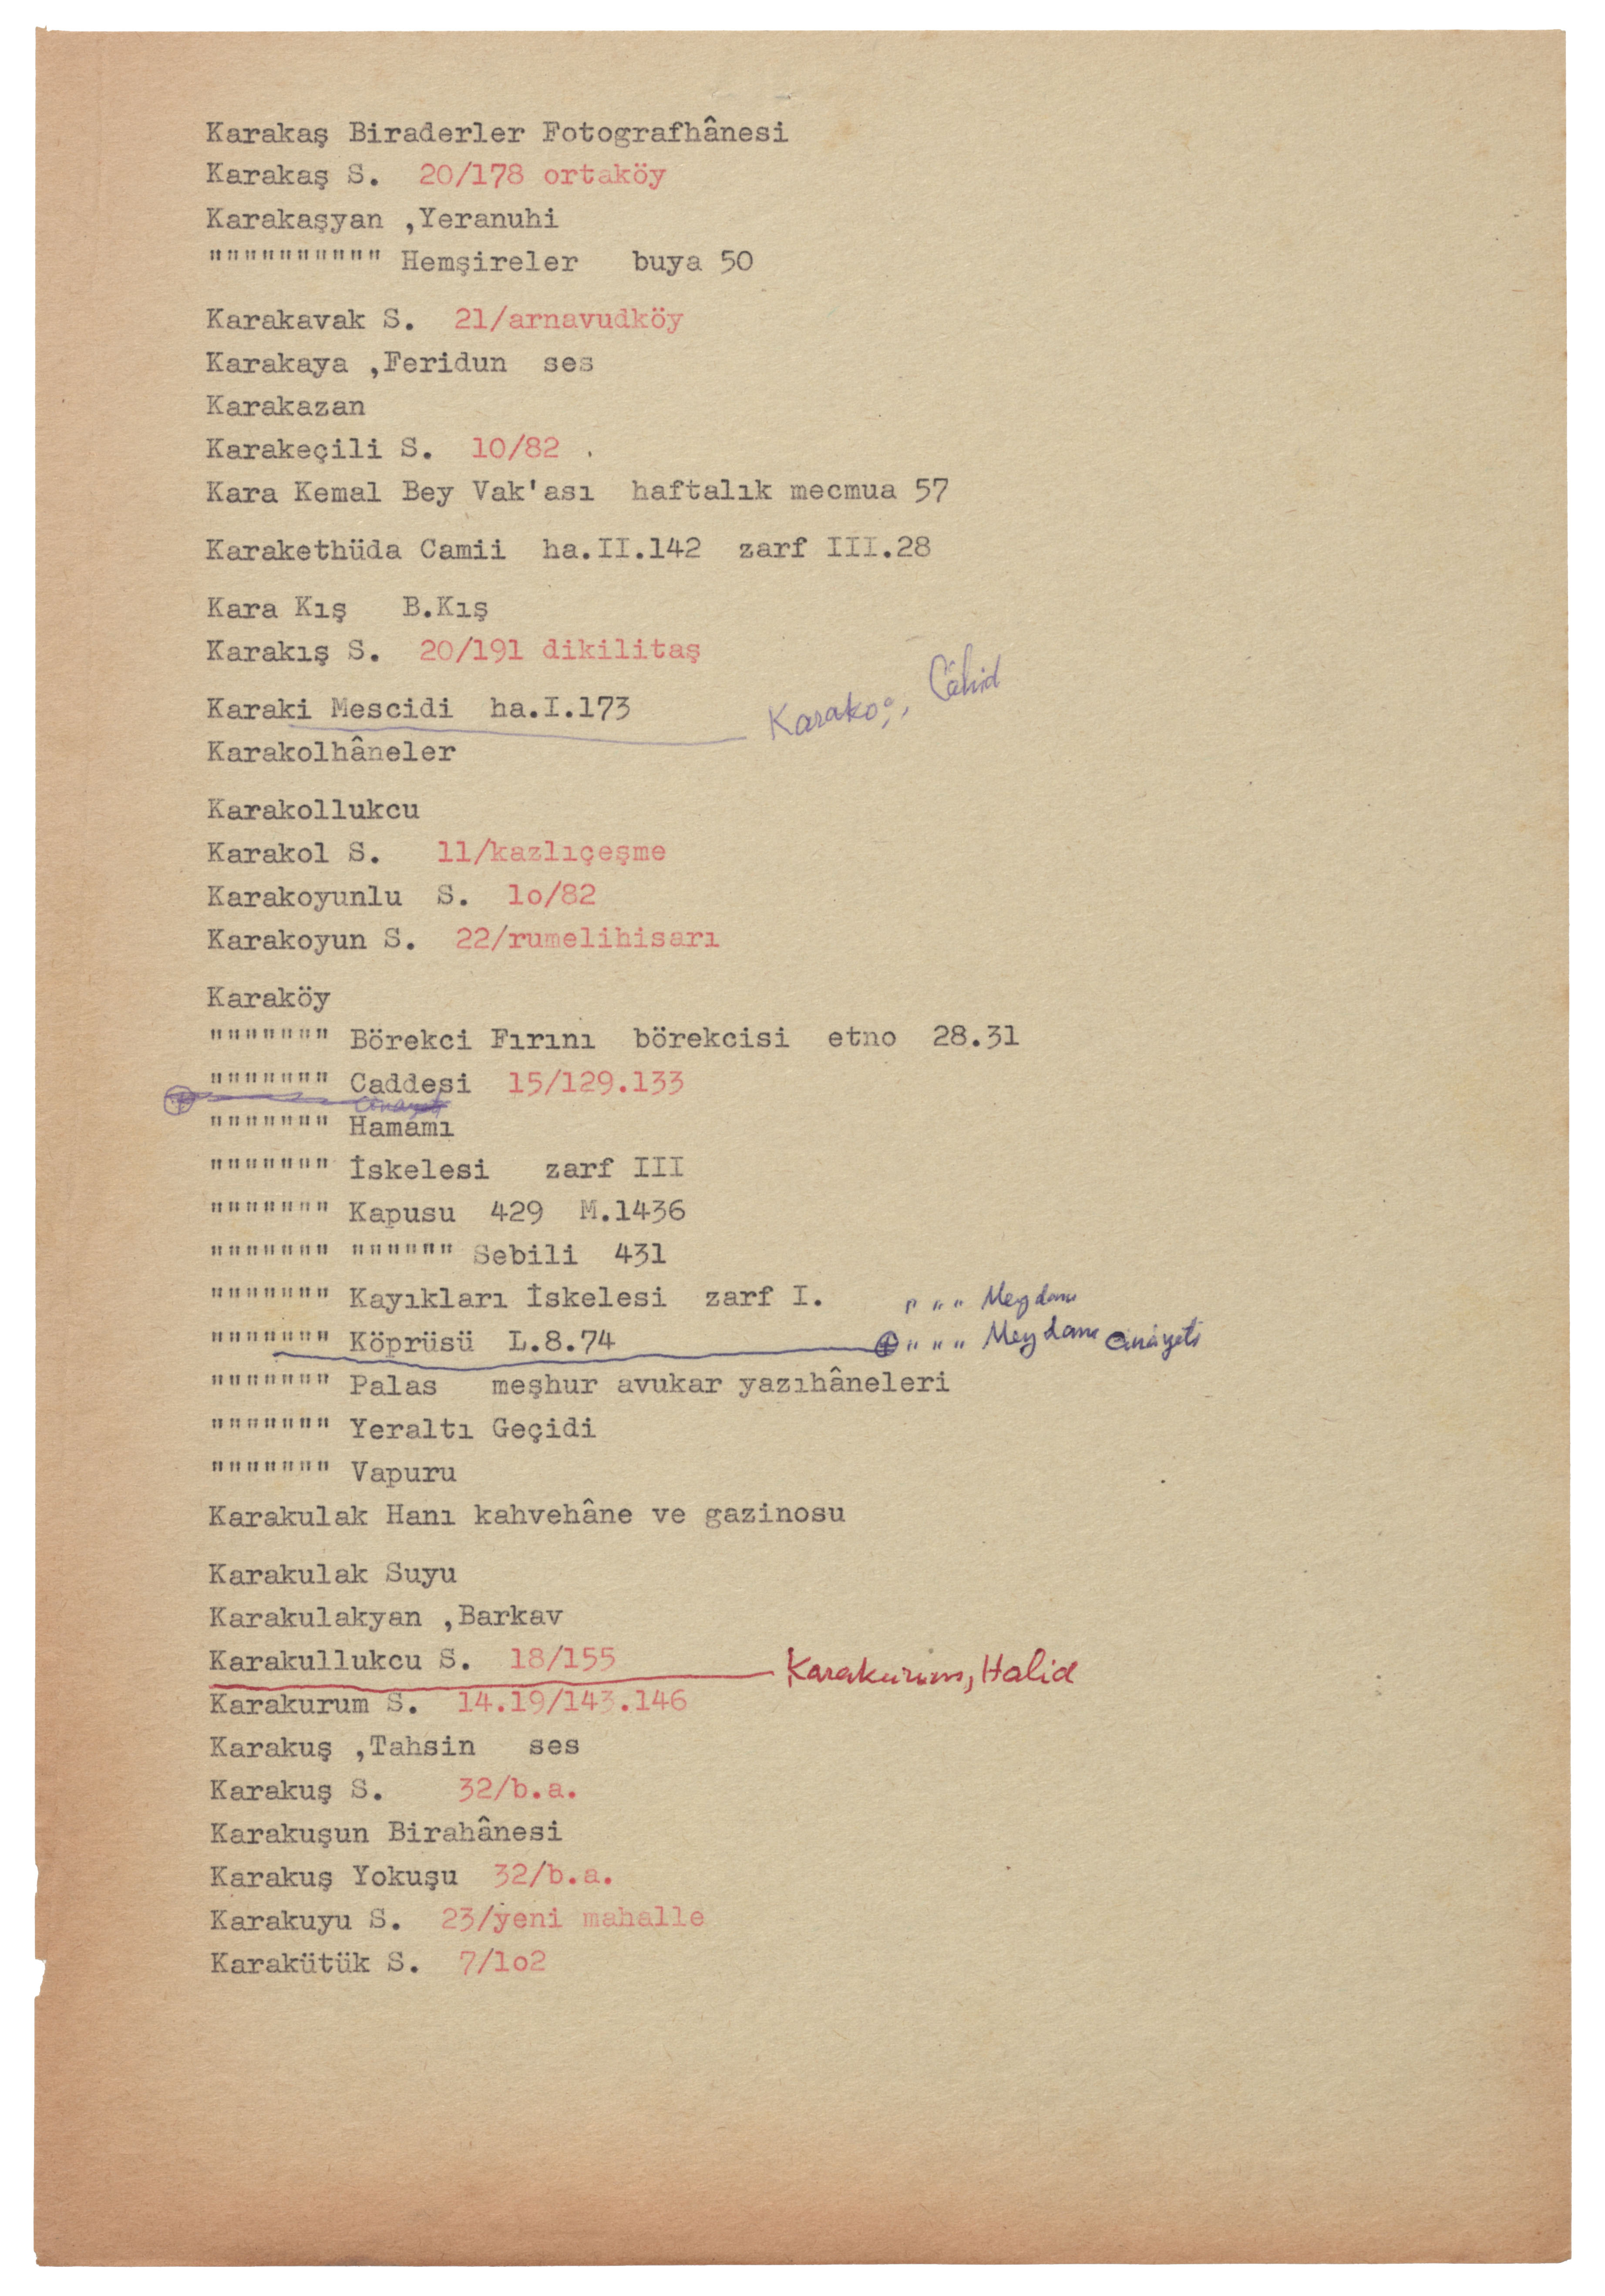 Karakaş Biraderler Fotografhânesi
Karakaş S. 20/178 ortaköy
Karakaşyan ,Yeranuhi
"""""""""" Hemşireler buya 50
Karakavak S. 21/arnavudköy
Karakaya ,Feridun ses
Karakazan
Karakeçili S. 10/82 .
Kara Kemal Bey Vak'ası haftalık mecmua 57
Karakethüda Camii ha.II.142 zarf III.28
Kara Kış B.Kış
Karakış S. 20/191 dikilitaş
Karaki Mescidi ha.I.173 Karakoç, Câhid
Karakolhâneler
Karakollukcu
Karakol S. 11/kazlıçeşme
Karakoyunlu S. lo/82
Karakoyun S. 22/rumelihisarı
Karaköy
""""""" Börekci Fırını börekcisi etno 28.31
""""""" Caddesi 15/129.133
""""""" Hamamı
""""""" İskelesi zarf III
""""""" Kapusu 429 M.1436
""""""" """""" Sebili 431
""""""" Kayıkları İskelesi zarf I. " " " Meydanı
""""""" Köprüsü L.8.74 " " " Meydanı Cinâyeti
""""""" Palas meşhur avukar yazıhâneleri
""""""" Yeraltı Geçidi
""""""" Vapuru
Karakulak Hanı kahvehâne ve gazinosu
Karakulak Suyu
Karakulakyan ,Barkav
Karakullukcu S. 18/155 Karakurum, Halid
Karakurum S. 14.19/143.146
Karakuş ,Tahsin ses
Karakuş S. 32/b.a.
Karakuşun Birahânesi
Karakuş Yokuşu 32/b.a.
Karakuyu S. 23/yeni mahalle
Karakütük S. 7/lo2